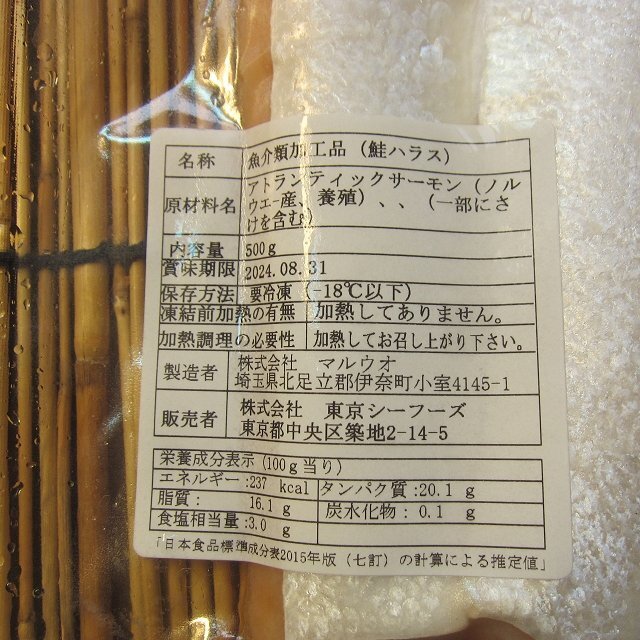 名称 魚介類加工品（鮭ハラス）
原材料名 アトランティックサーモン（ノル
ウエー産、養殖）、、（一部にさ
けを含む）
内容量 500g
賞味期限 2024.08.31
保存方法 要冷凍（-18℃以下）
凍結前加熱の有無 加熱してありません。
加熱調理の必要性 加熱してお召し上がり下さい。
製造者 株式会社 マルウオ
埼玉県北足立郡伊奈町小室4145-1
販売者 株式会社 東京シーフーズ
東京都中央区築地2-14-5
栄養成分表示（100g当り）
エネルギー:237 kcal タンパク質:20.1 g
脂質: 16.1 g 炭水化物: 0.1 g
食塩相当量:3.0 g
「日本食品標準成分表2015年版（七訂）の計算による推定値」